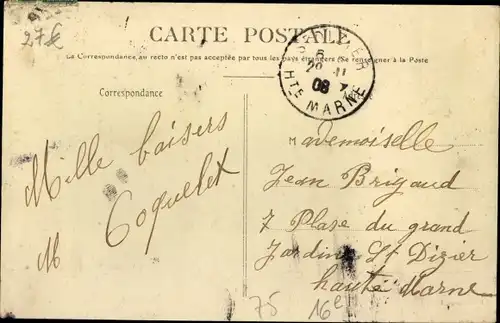 27€
CARTE POSTALE
La Correspondance au recto n'est pas acceptée par tous les pays étrangers (Se renseigner à la Poste)
DIZIER
6
29
08
HTE MARNE
Correspondance
Mille baisers
M Coquelet
Mademoiselle
Jean Brigaud
7 Plase du grand
Jardin St Dizier
haute Marne
75 16e